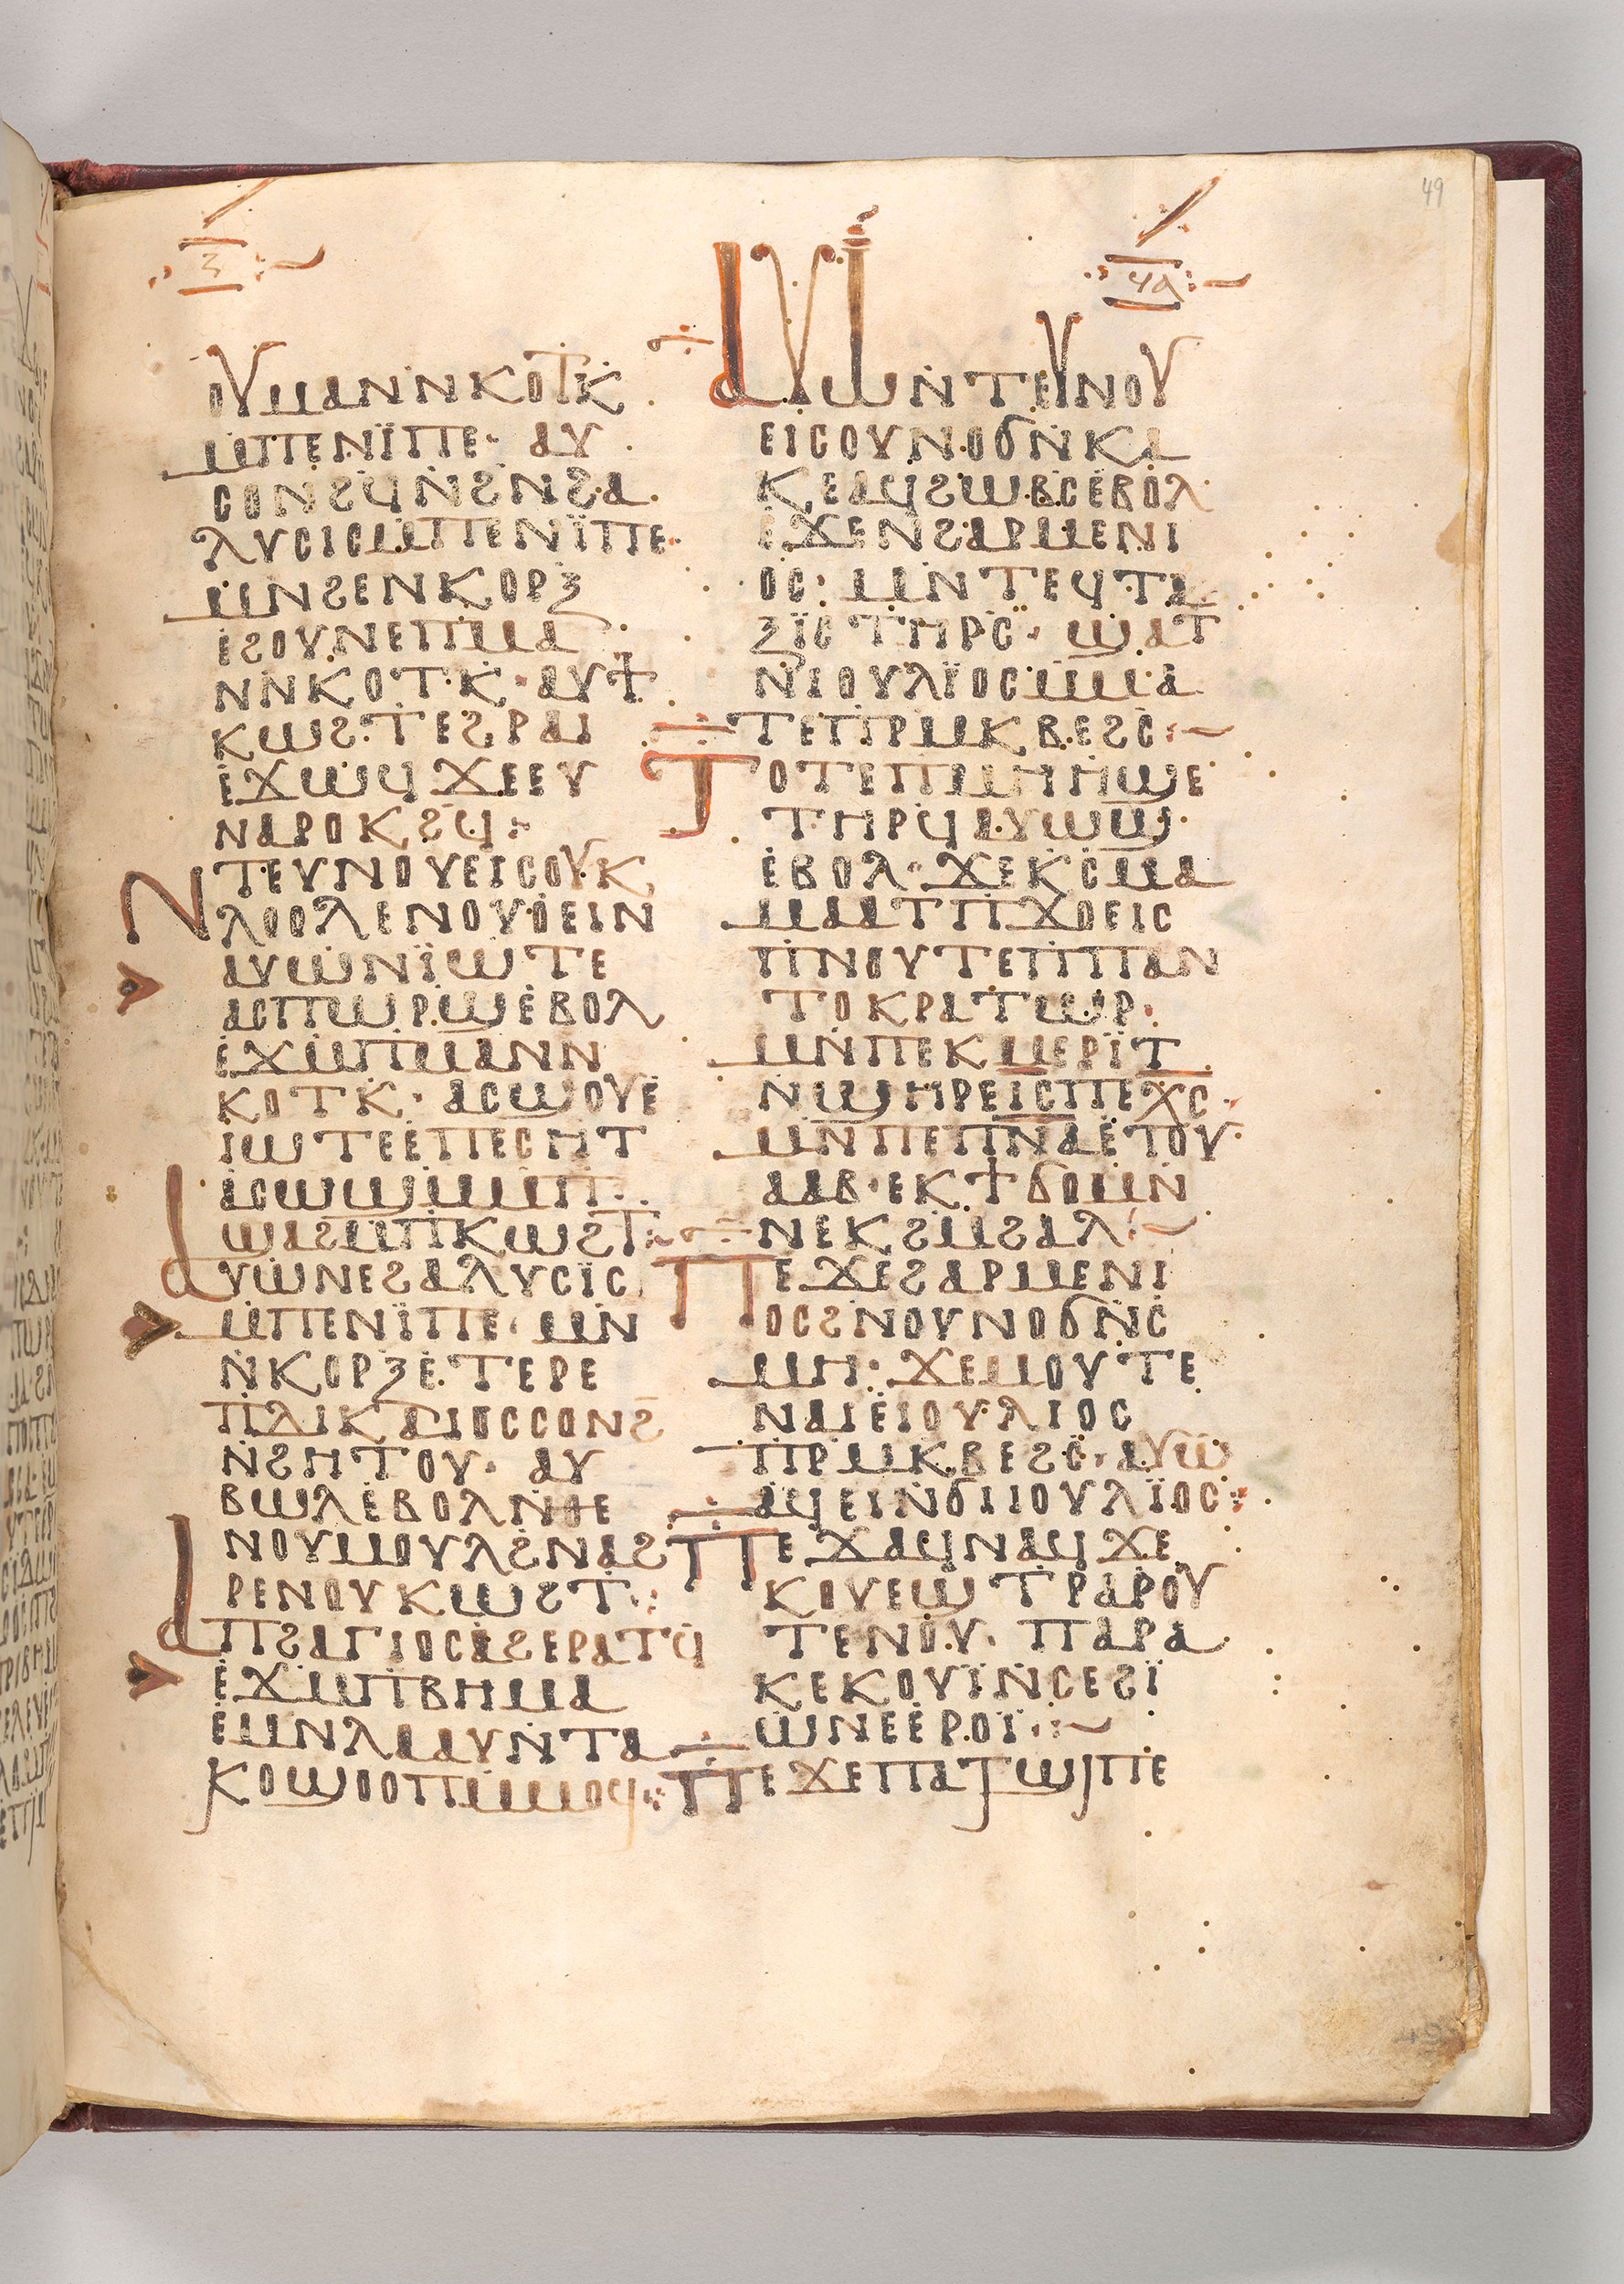 ⲍ̅
ϥⲁ̅
49
ⲟⲩⲙⲁⲛⲛⲕⲟⲧⲕ
ⲙⲡⲉⲛⲓ̈ⲡⲉ· ⲁⲩ
ⲥⲟⲛϩϥⲛϩⲛϩⲁ
ⲗⲩⲥⲓⲥⲙⲡⲉⲛⲓ̈ⲡⲉ·
ⲙⲛϩⲉⲛⲕⲟⲣⲝ
ⲉϩⲟⲩⲛⲉⲡⲙⲁ
ⲛⲛⲕⲟⲧⲕ· ⲁⲩϯ
ⲕⲱϩⲧⲉϩⲣⲁⲓ
ⲉϫⲱϥϫⲉⲉⲩ
ⲛⲁⲣⲟⲕϩϥ:
Ⲛⲧⲉⲩⲛⲟⲩⲉⲓⲥⲟⲩⲕ
ⲗⲟⲟⲗⲉⲛⲟⲩⲟⲉⲓⲛ
ⲁⲩⲱⲛⲓ̈ⲱⲧⲉ
ⲁⲥⲡⲱⲣϣⲉⲃⲟⲗ
ⲉϫⲙⲡⲙⲁⲛⲛ
ⲕⲟⲧⲕ· ⲁⲥϣⲟⲩⲉ
ⲓⲱⲧⲉⲉⲡⲉⲥⲏⲧ
ⲁⲥⲱϣⲙⲙⲡ
ϣⲁϩⲙⲡⲕⲱϩⲧ:~
Ⲁⲩⲱⲛⲉϩⲁⲗⲩⲥⲓ̈ⲥ
ⲙⲡⲉⲛⲓ̈ⲡⲉ· ⲙⲛ
ⲛⲕⲟⲣⲝⲉⲧⲉⲣⲉ
ⲡⲇⲓⲕⲁⲓⲟⲥⲥⲟⲛϩ
ⲛϩⲏⲧⲟⲩ· ⲁⲩ
ⲃⲱⲗⲉⲃⲟⲗⲛⲑⲉ
ⲛⲟⲩⲙⲟⲩⲗϩⲛⲁϩ
ⲣⲉⲛⲟⲩⲕⲱϩⲧ:
Ⲁⲡϩⲁⲅⲓⲟⲥⲁϩⲉⲣⲁⲧϥ
ⲉϫⲙⲡⲃⲏⲙⲁ
ⲉⲙⲛⲗⲁⲁⲩⲛⲧⲁ
ⲕⲟϣⲟⲟⲡⲙⲙⲟϥ:
Ⲁⲩⲱⲛⲧⲉⲩⲛⲟⲩ
ⲉⲓⲥⲟⲩⲛⲟϭⲛⲕⲁ
ⲕⲉⲁϥϩⲱⲃⲥⲉⲃⲟⲗ
ⲉϫⲉⲛϩⲁⲣⲙⲉⲛⲓ
ⲟⲥ· ⲙⲛⲧⲉϥⲧⲁ
ⲝⲓ̈ⲥⲧⲏⲣⲥ̈· ϣⲁⲧ
ⲛⲓⲟⲩⲗⲓ̈ⲟⲥⲙⲙⲁ
ⲧⲉⲡⲣⲙⲕⲃⲉϩⲥ:~
Ⲧⲟⲧⲉⲡⲙⲏⲏϣⲉ
ⲧⲏⲣϥⲁⲩⲱϣ
ⲉⲃⲟⲗ· ϫⲉⲕⲥⲙⲁ
ⲙⲁⲁⲧⲡϫⲟⲉⲓⲥ
ⲡⲛⲟⲩⲧⲉⲡⲡⲁⲛ
ⲧⲟⲕⲣⲁⲧⲱⲣ·
ⲙⲛⲡⲉⲕⲙⲉⲣⲓ̈ⲧ
ⲛϣⲏⲣⲉⲓ̅ⲥ̅ⲡⲉⲭ̅ⲥ̅·
ⲙⲛⲡⲉⲡ̅ⲛ̅ⲁ̅ⲉⲧⲟⲩ
ⲁⲁⲃ· ⲉⲕϯϭⲟⲙⲛ
ⲛⲉⲕϩⲙϩⲁⲗ:~
Ⲡⲉϫⲉϩⲁⲣⲙⲉⲛⲓ
ⲟⲥϩⲛⲟⲩⲛⲟϭⲛⲥ
ⲙⲏ· ϫⲉⲙⲟⲩⲧⲉ
ⲛⲁⲓⲉⲓⲟⲩⲗⲓⲟⲥ
ⲡⲣⲙⲕⲃⲉϩⲥ̈· ⲁⲩⲱ
ⲁϥⲉⲓⲛϭⲓⲓⲟⲩⲗⲓ̈ⲟⲥ:
Ⲡⲉϫⲁϥⲛⲁϥϫⲉ
ⲕⲟⲩⲉϣⲧⲣⲁⲣⲟⲩ
ⲧⲉⲛⲟⲩ· ⲡⲁⲣⲁ
ⲕⲉⲕⲟⲩⲓ̈ⲛⲥⲉϩⲓ̈
ⲱⲛⲉⲉⲣⲟⲓ̈:~
Ⲡⲉϫⲉⲡⲁⲧϣⲡⲉ